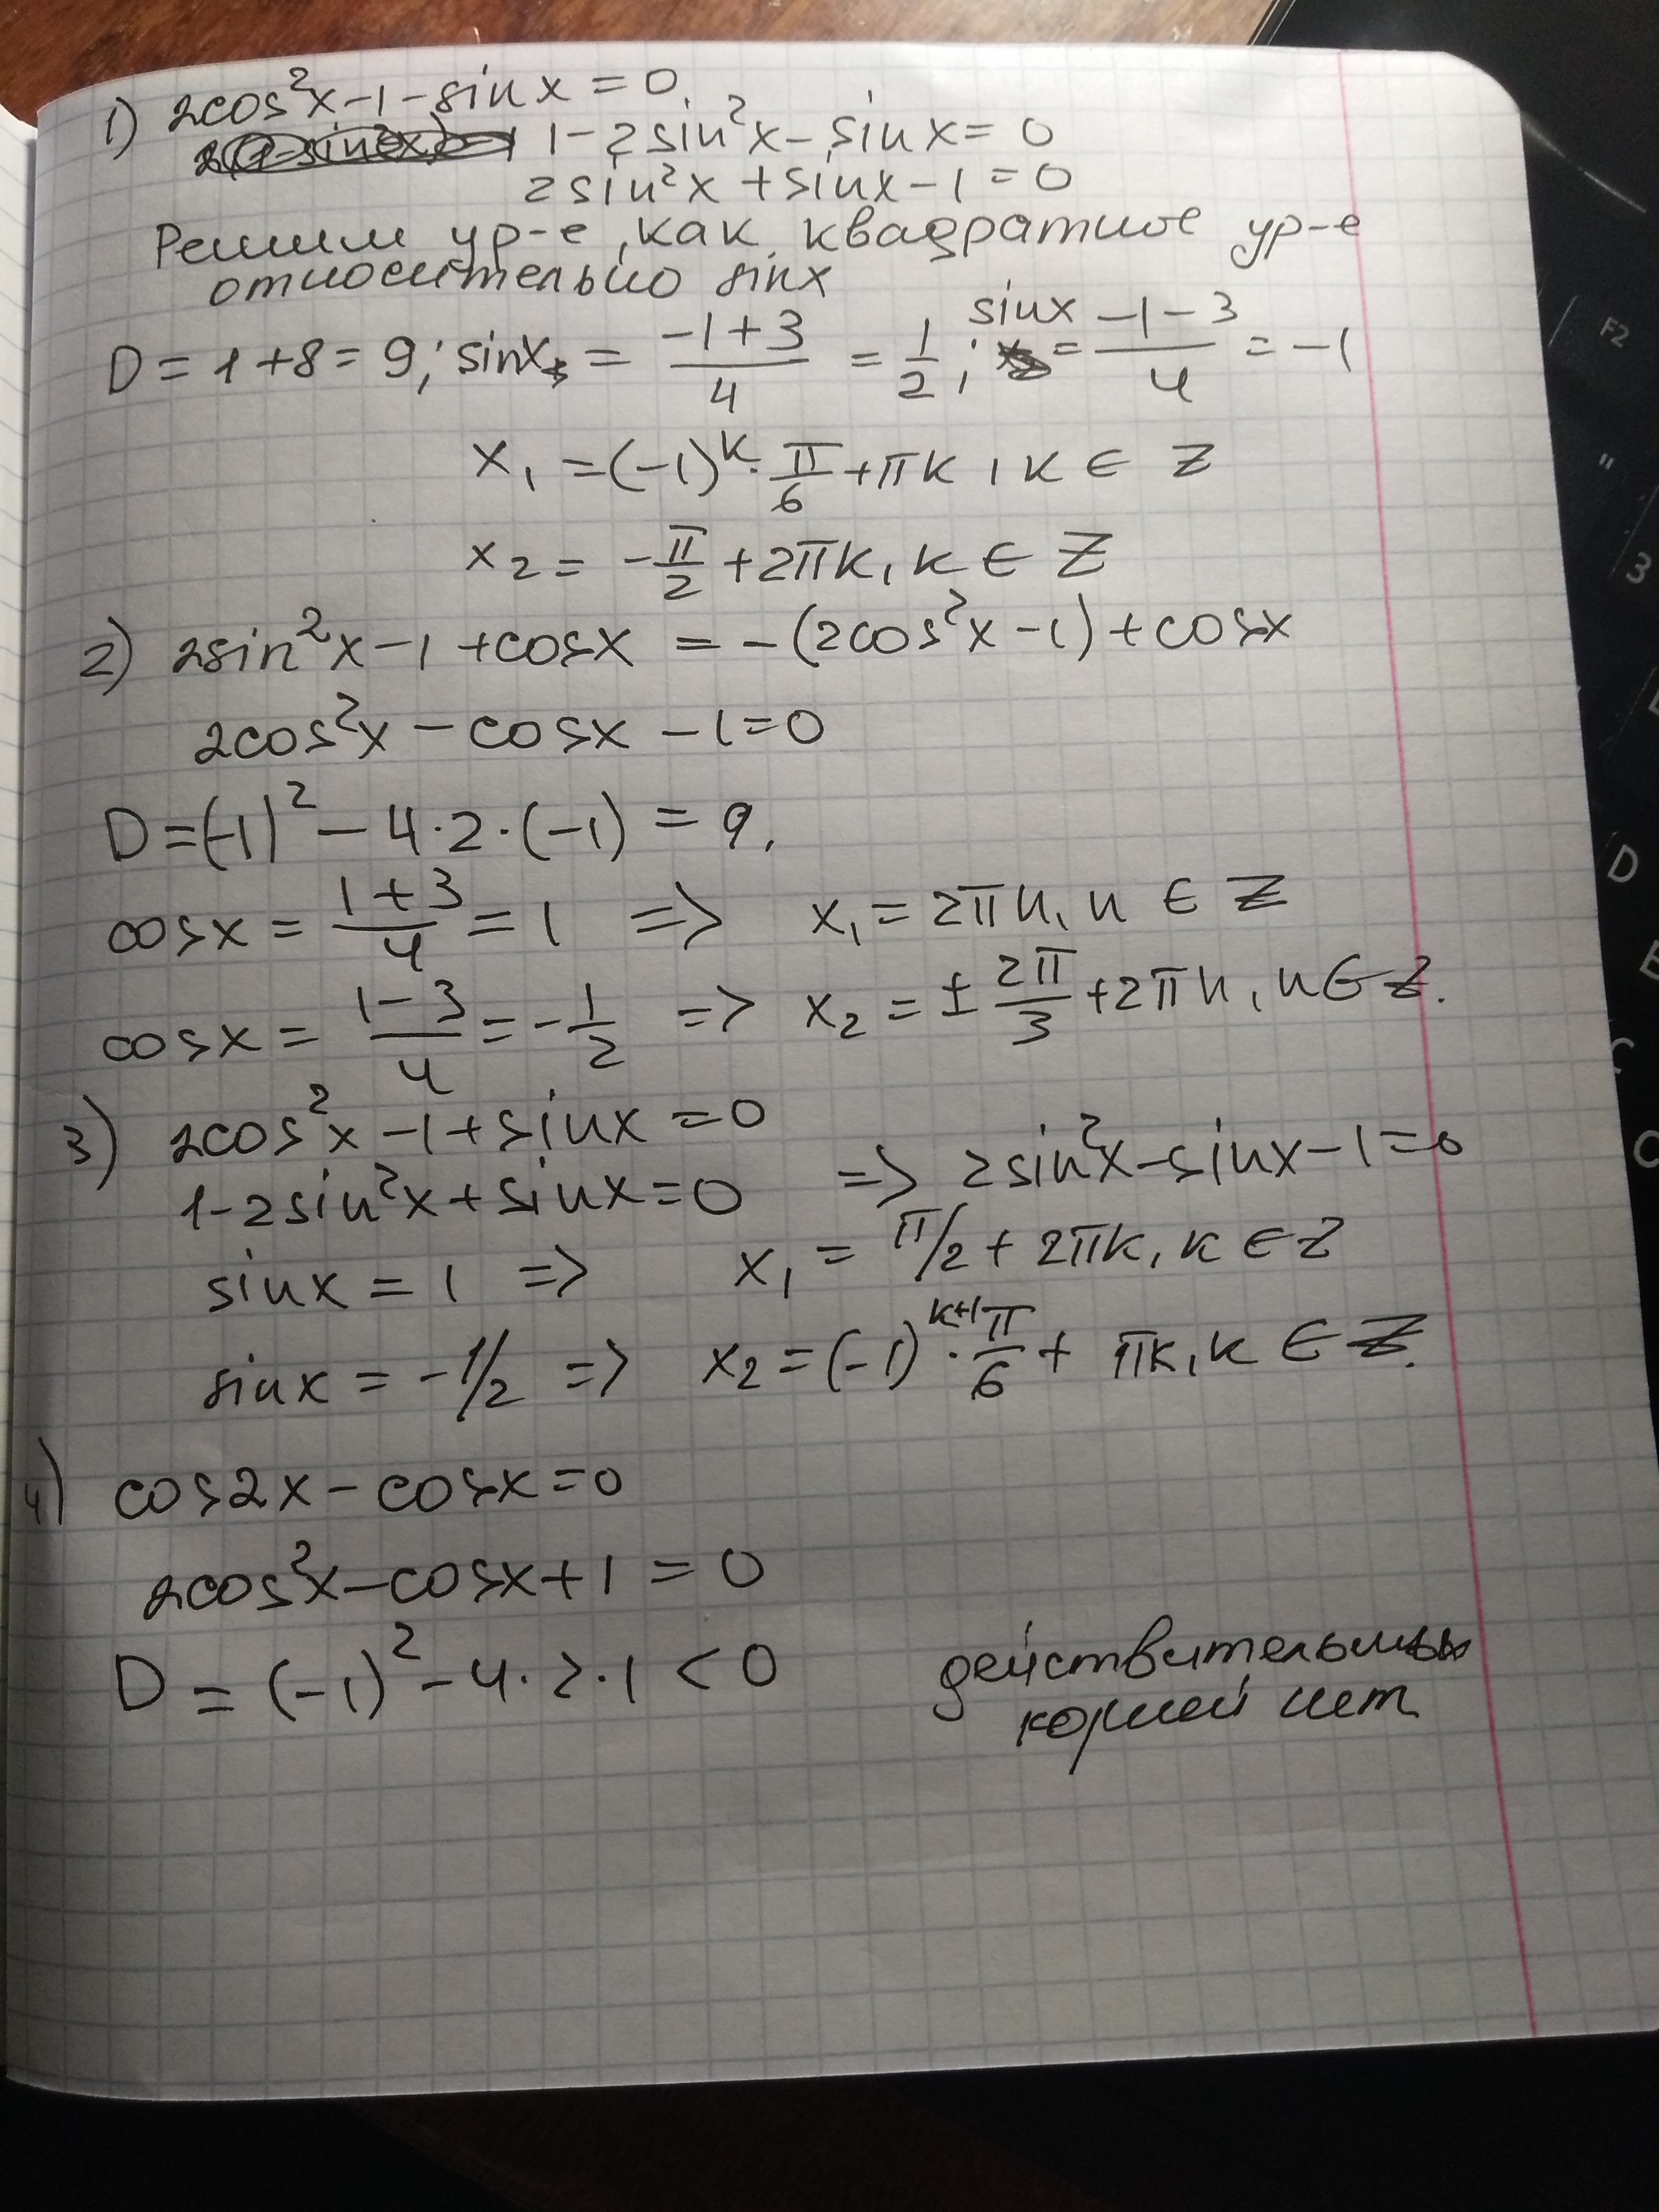 1) 2cos²x-1-sinx=0.
1-2sin²x-sinx=0
2sin²x+sinx-1=0
Решим ур-е, как квадратное ур-е
относительно sinx
D=1+8=9; sinx = (-1+3)/4 = 1/2; sinx = (-1-3)/4 = -1
x₁ = (-1)^k · π/6 + πk, k ∈ Z
x₂ = -π/2 + 2πk, k ∈ Z
2) 2sin²x-1+cosx = -(2cos²x-1)+cosx
2cos²x - cosx - 1=0
D=(-1)² - 4·2·(-1) = 9.
cosx = (1+3)/4 = 1 => x₁ = 2πn, n ∈ Z
cosx = (1-3)/4 = -1/2 => x₂ = ± 2π/3 + 2πn, n ∈ Z.
3) 2cos²x-1+sinx=0
1-2sin²x+sinx=0 => 2sin²x-sinx-1=0
sinx = 1 => x₁ = π/2 + 2πk, k ∈ Z
sinx = -1/2 => x₂ = (-1)^(k+1) · π/6 + πk, k ∈ Z.
4) cos2x-cosx=0
2cos²x-cosx+1=0
D = (-1)² - 4·2·1 < 0 действительных
корней нет
F2
"
3
D
C